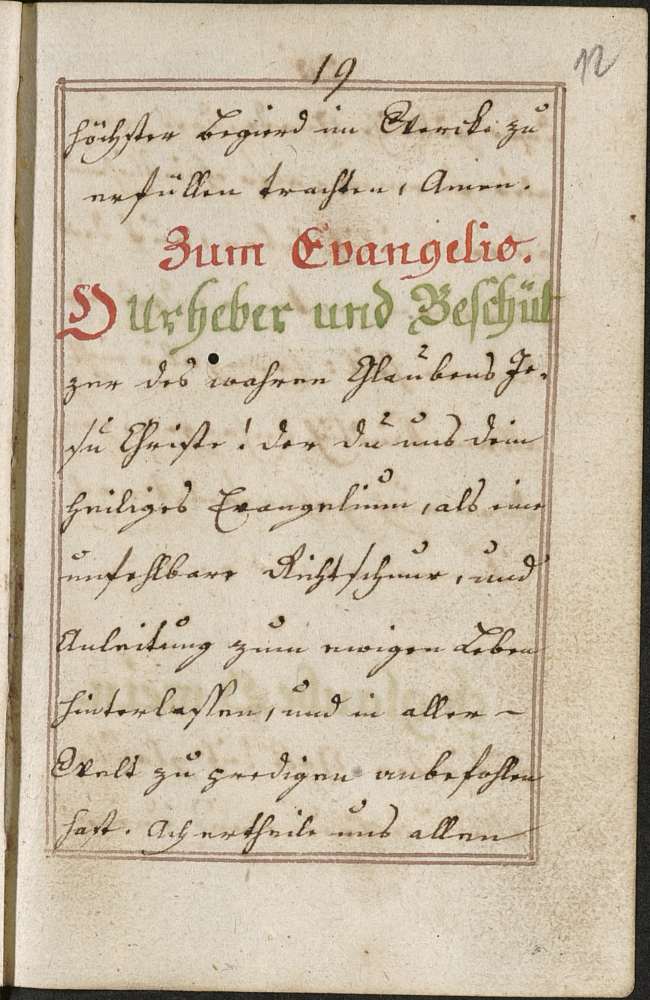 19
12
höchster Begierd im Wercke zu
erfüllen trachten, Amen.
Zum Evangelio.
O Urheber und Beschüt
zer des wahren Glaubens Je-
su Christe! der du uns dein
heiliges Evangelium, als eine
unfehlbare Richtschnur, und
Anleitung zum ewigen Leben
hinterlassen, und in aller -
Welt zu predigen anbefohlen
hast. Ach ertheile uns allen